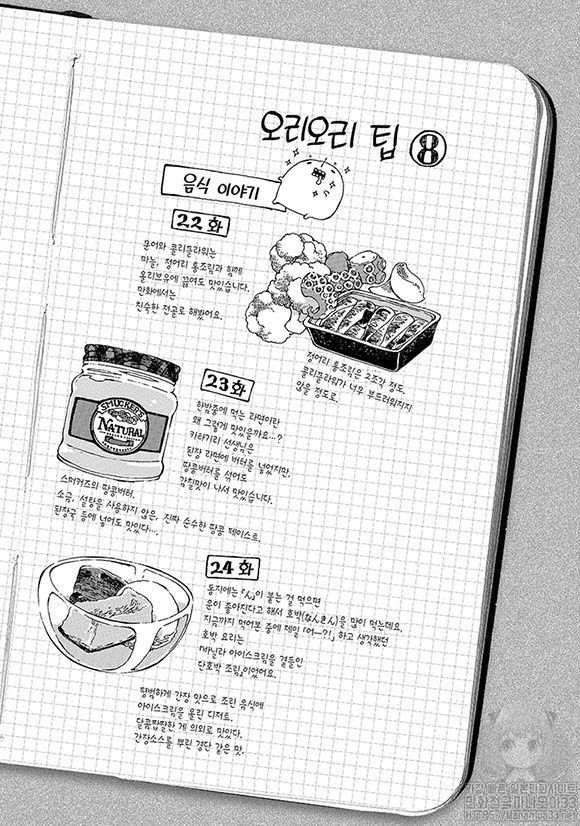 오리오리 팁 8
음식 이야기
22화
문어와 콜리플라워는
마늘, 정어리 통조림과 함께
올리브유에 끓여도 맛있습니다.
만화에서는
친숙한 전골로 해봤어요.
정어리 통조림은 2조각 정도.
콜리플라워가 너무 부드러워지지
않을 정도로.
23화
한밤중에 먹는 라면이란
왜 그렇게 맛있을까요...?
카타기리 선생님은
된장 라면에 버터를 넣었지만,
땅콩버터를 섞어도
감칠맛이 나서 맛있습니다.
SMUCKER'S
NATURAL
스머커즈의 땅콩버터.
소금, 설탕을 사용하지 않은, 진짜 순수한 땅콩 페이스트.
된장국 등에 넣어도 맛있다....
24화
동지에는 「ん」이 붙는 걸 먹으면
운이 좋아진다고 해서 호박(なんきん)을 많이 먹는데요.
지금까지 먹어본 중에 제일 「어—?!」 하고 생각했던
호박 요리는
「바닐라 아이스크림을 곁들인
단호박 조림」이었어요.
평범하게 간장 맛으로 조린 음식에
아이스크림을 올린 디저트.
달콤짭짤한 게 의외로 맛있다.
간장소스를 뿌린 경단 같은 맛.